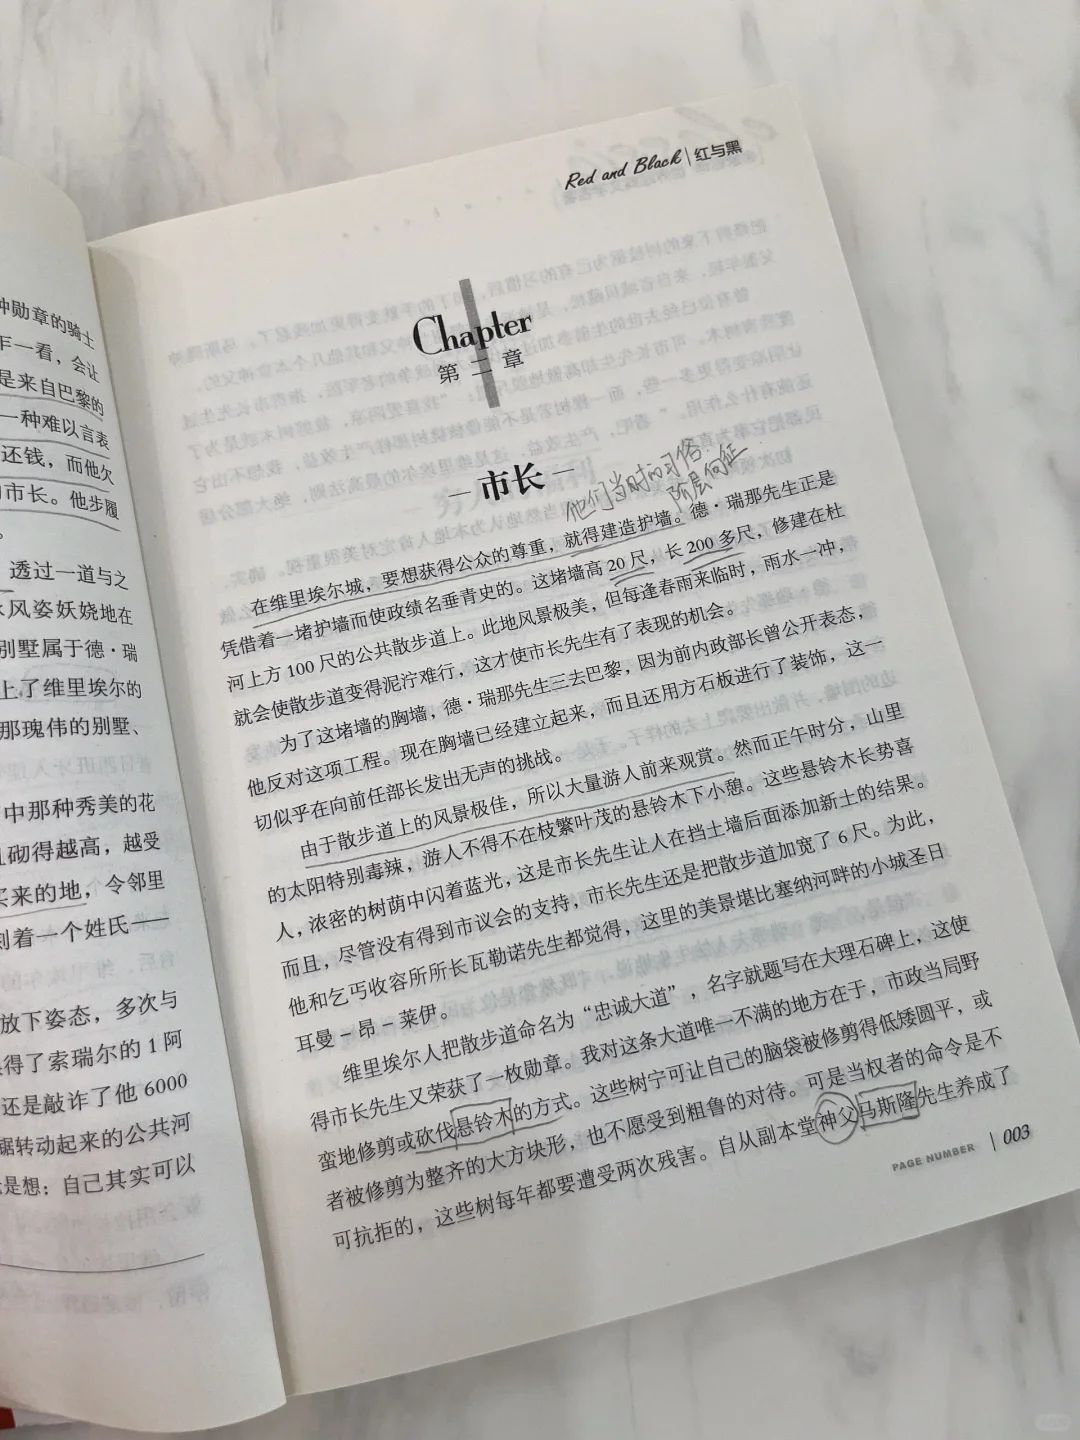 种勋章的骑士
乍一看，会让
是来自巴黎的
一种难以言表
还钱，而他欠
市长。他步履
。
透过一道与之
风姿妖娆地在
别墅属于德·瑞
上了维里埃尔的
那瑰伟的别墅、
中那种秀美的花
砌得越高，越受
买来的地，令邻里
刻着一个姓氏——
放下姿态，多次与
得了索瑞尔的1阿
还是敲诈了他6000
锯转动起来的公共河
是想：自己其实可以
Red and Black | 红与黑
Chapter
第二章
— 市长 —
他们当时的习俗
阶层向征
在维里埃尔城，要想获得公众的尊重，就得建造护墙。德·瑞那先生正是
凭借着一堵护墙而使政绩名垂青史的。这堵墙高20尺，长200多尺，修建在杜
河上方100尺的公共散步道上。此地风景极美，但每逢春雨来临时，雨水一冲，
就会使散步道变得泥泞难行，这才使市长先生有了表现的机会。
为了这堵墙的胸墙，德·瑞那先生三去巴黎，因为前内政部长曾公开表态，
他反对这项工程。现在胸墙已经建立起来，而且还用方石板进行了装饰，这一
切似乎在向前任部长发出无声的挑战。
由于散步道上的风景极佳，所以大量游人前来观赏。然而正午时分，山里
的太阳特别毒辣，游人不得不在枝繁叶茂的悬铃木下小憩。这些悬铃木长势喜
人，浓密的树荫中闪着蓝光，这是市长先生让人在挡土墙后面添加新土的结果。
而且，尽管没有得到市议会的支持，市长先生还是把散步道加宽了6尺。为此，
他和乞丐收容所所长瓦勒诺先生都觉得，这里的美景堪比塞纳河畔的小城圣日
耳曼－昂－莱伊。
维里埃尔人把散步道命名为“忠诚大道”，名字就题写在大理石碑上，这使
得市长先生又荣获了一枚勋章。我对这条大道唯一不满的地方在于，市政当局野
蛮地修剪或砍伐悬铃木的方式。这些树宁可让自己的脑袋被修剪得低矮圆平，或
者被修剪为整齐的大方块形，也不愿受到粗鲁的对待。可是当权者的命令是不
可抗拒的，这些树每年都要遭受两次残害。自从副本堂神父马斯隆先生养成了
PAGE NUMBER | 003